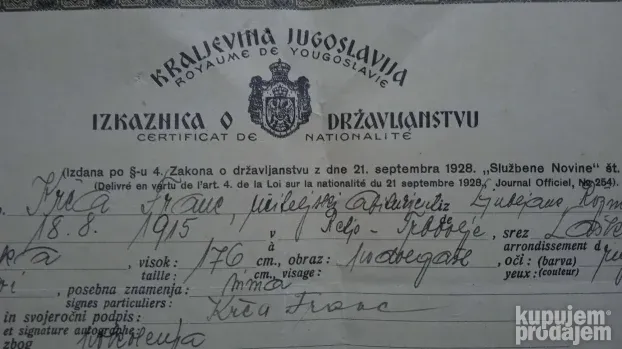 KRALJEVINA JUGOSLAVIJA
ROYAUME DE YOUGOSLAVIE
IZKAZNICA O DRŽAVLJANSTVU
CERTIFICAT DE NATIONALITÉ
(Izdana po §-u 4. Zakona o državljanstvu z dne 21. septembra 1928. „Službene Novine" št.
(Délivré en vertu de l'art. 4. de la Loi sur la nationalité du 21 septembre 1928, Journal Officiel, No 254).
Krča Franc, učiteljski Ljubljana,
18.8. 1915 v Trbovlje, srez Laško
de arrondissement d
visok: 176 cm., obraz: podolgast, oči: (barva)
taille: cm., visage: yeux: (couleur)
posebna znamenja: nima
signes particuliers:
in svojeročni podpis: Krča Franc
et signature autographe:
zbog
kupujem
prodajem